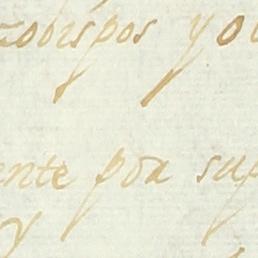 zobispos y ob
ente por sup